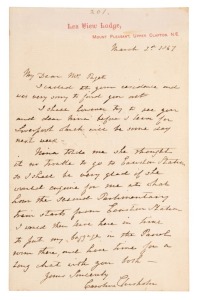 201.
Lea View Lodge,
Mount Pleasant Upper Clapton N.E.
March 2nd 1867
My Dear Mrs. Pigott
I called at your residence and
was very sorry to find you out
I shall however try to see you
and dear before I leave for
Liverpool which will be some day
next week.
Nina tells me she thought
it no trouble to go to Euston Station
so I shall be very glad if she
would enquire for me at what
hour the second Parliamentary
train starts from Euston Station
I could then leave here in time
to put my luggage in the
room there and have time for a
long chat with you both
Yours Sincerely
Caroline Chisholm